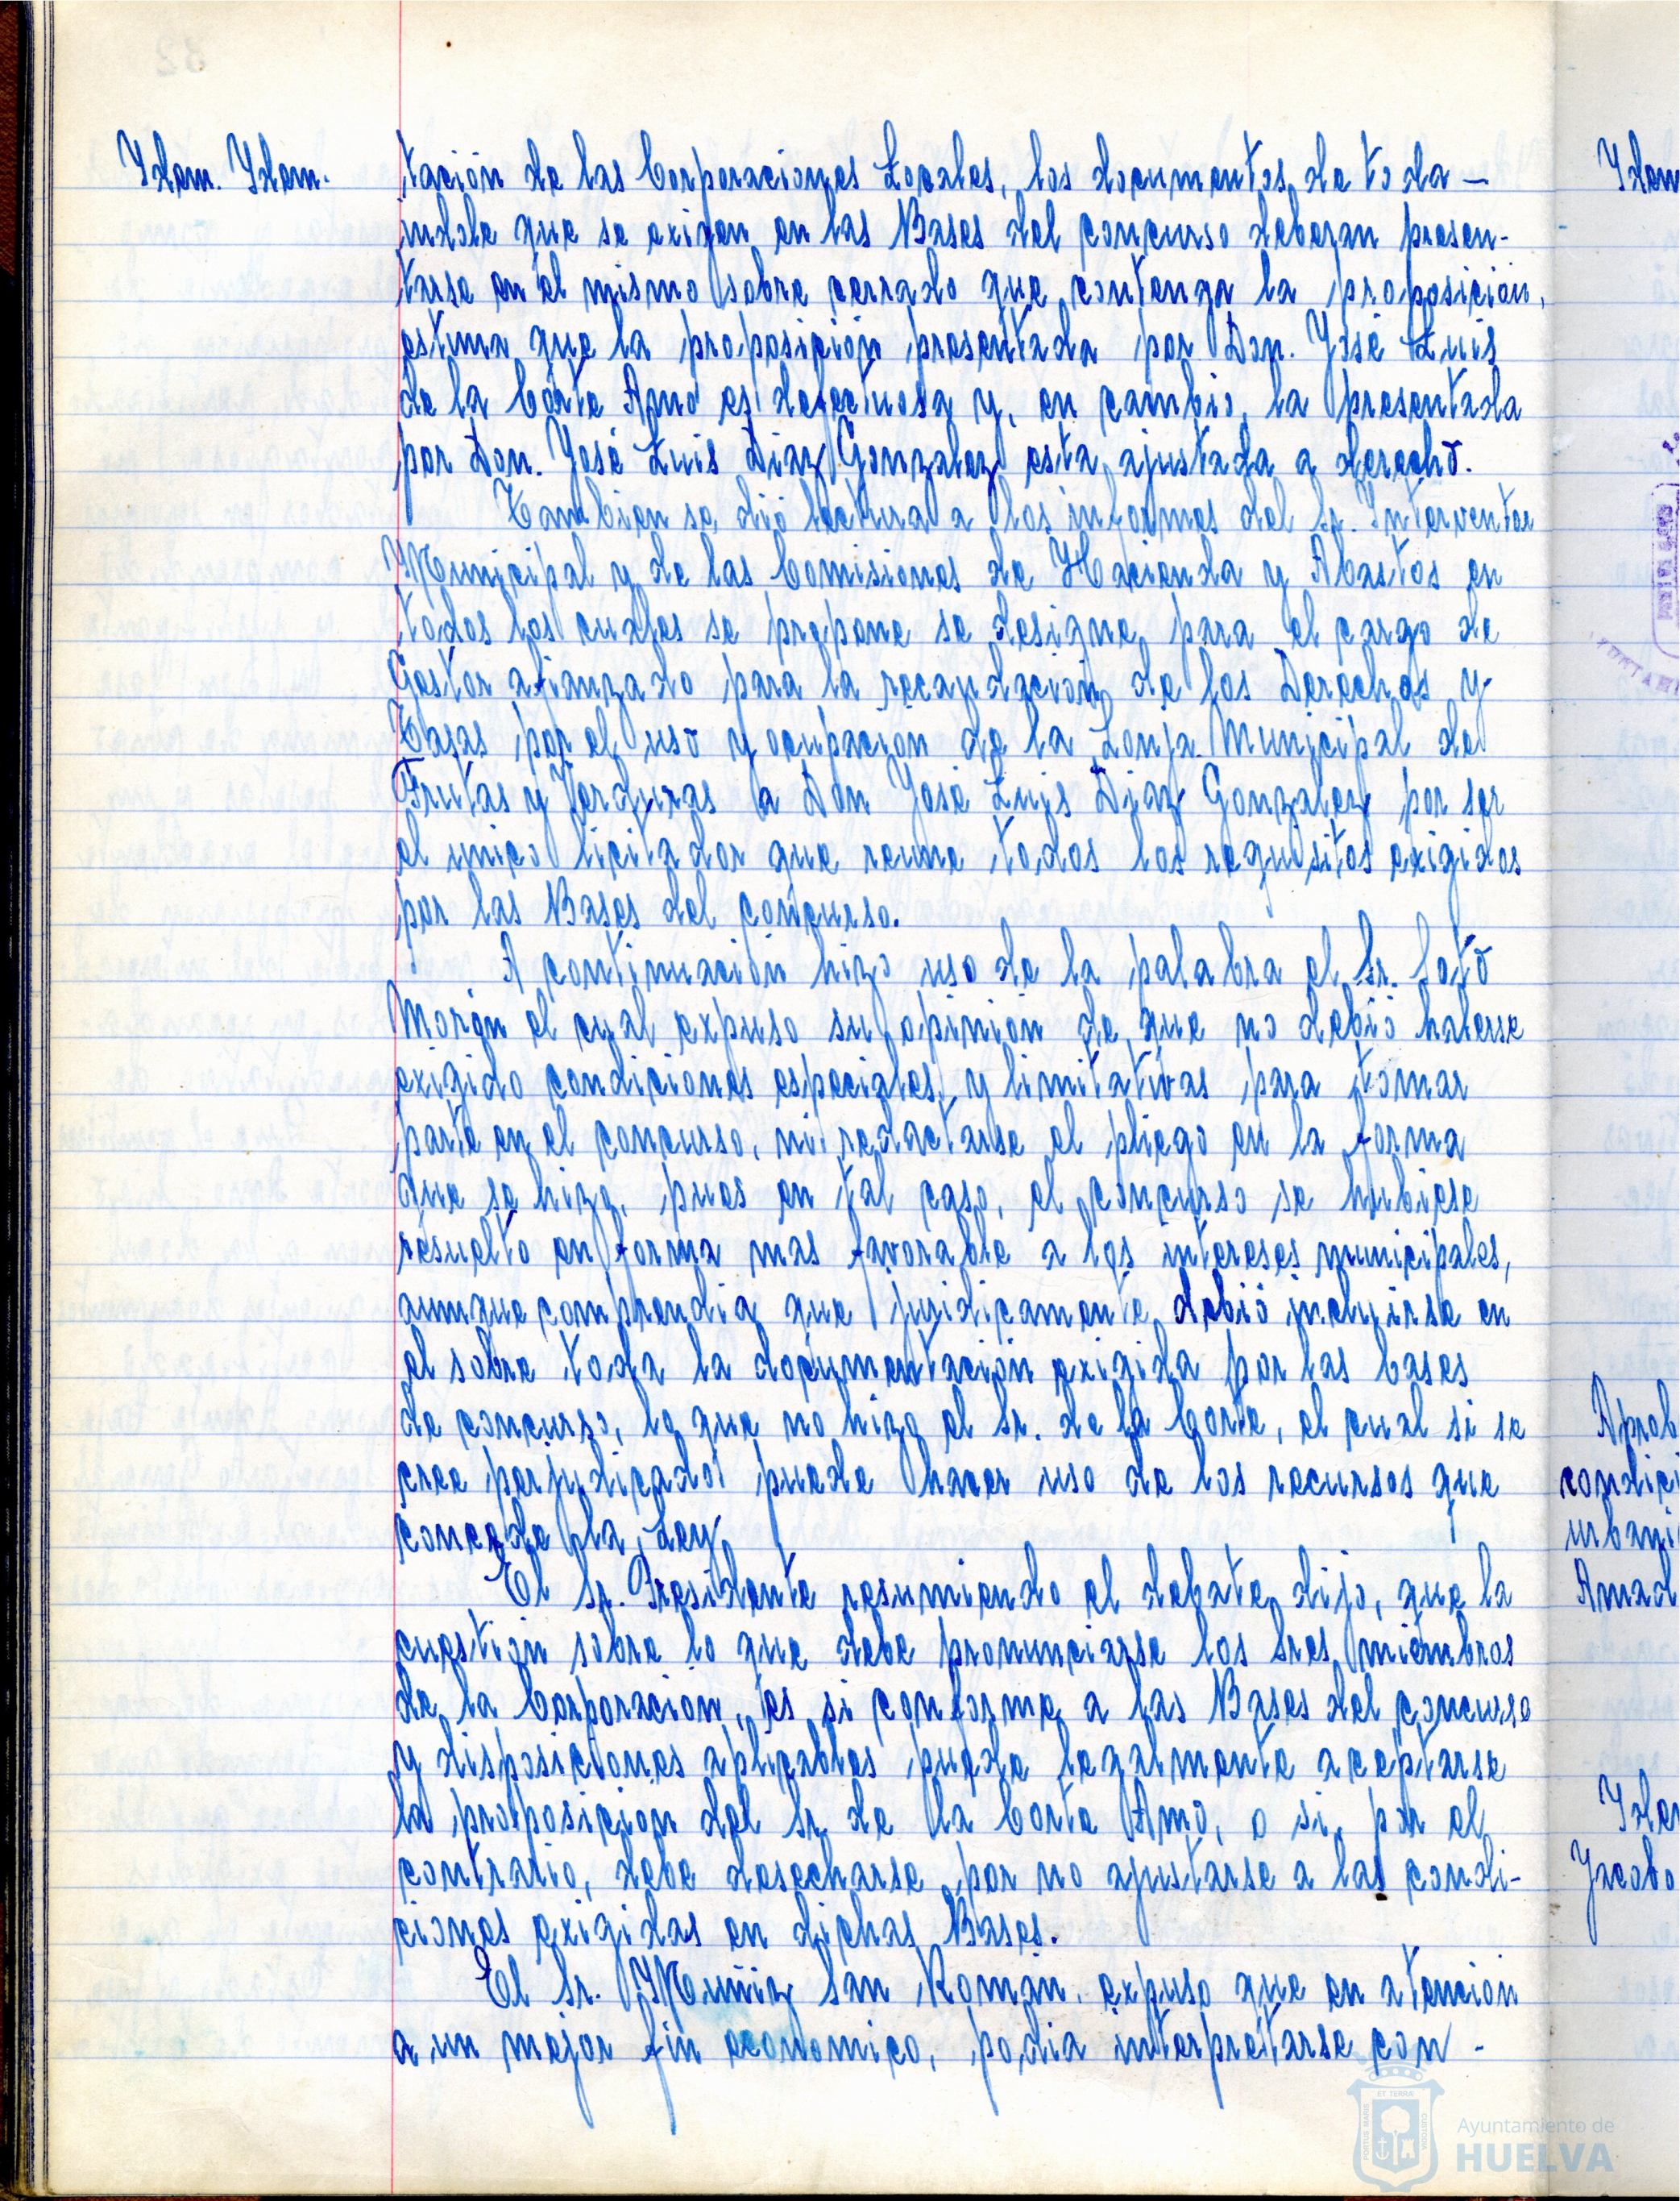 Idem. Idem.
tación de las Corporaciones Locales, los documentos de toda -
indole que se exigen en las Bases del concurso deberan presen-
tarse en el mismo sobre cerrado que contenga la proposición,
estima que la proposición presentada por Don. José Luis
de la Corte Amo es defectuosa y, en cambio, la presentada
por Don. José Luis Diaz Gonzalez esta ajustada a derecho.
Tambien se dió lectura a los informes del Sr. Interventor
Municipal y de las Comisiones de Hacienda y Abastos en
todos los cuales se propone se designe para el cargo de
Gestor afianzado para la recaudación de los Derechos y
Tasas por el uso y ocupación de la Lonja Municipal de
Frutas y Verduras a Don José Luis Diaz Gonzalez por ser
el unico licitador que reune todos los requisitos exigidos
por las Bases del concurso.
A continuación hizo uso de la palabra el Sr. Soto
Morón el cual expuso su opinión de que no debió haberse
exigido condiciones especiales y limitativas para tomar
parte en el concurso, ni redactarse el pliego en la forma
que se hizo, pues en tal caso, el concurso se hubiese
resuelto en forma mas favorable a los intereses municipales,
aunque comprendia que juridicamente debió incluirse en
el sobre toda la documentación exigida por las bases
de concurso, lo que no hizo el Sr. de la Corte, el cual si se
cree perjudicado puede hacer uso de los recursos que
concede la Ley
El Sr. Presidente resumiendo el debate dijo, que la
cuestión sobre lo que debe pronunciarse los Sres miembros
de la Corporación, es si conforme a las Bases del concurso
y disposiciones aplicables puede legalmente aceptarse
la proposición del Sr. de la Corte Amo, o si, por el
contrario, debe desecharse por no ajustarse a las condi-
ciones exigidas en dichas Bases.
El Sr. Muñiz San Román, expuso que en atención
a un mejor fin economico, podia interpretarse con -
Idem
Aprob
condici
urbani
Amad
Idem
Jacobo
Ayuntamiento de
HUELVA